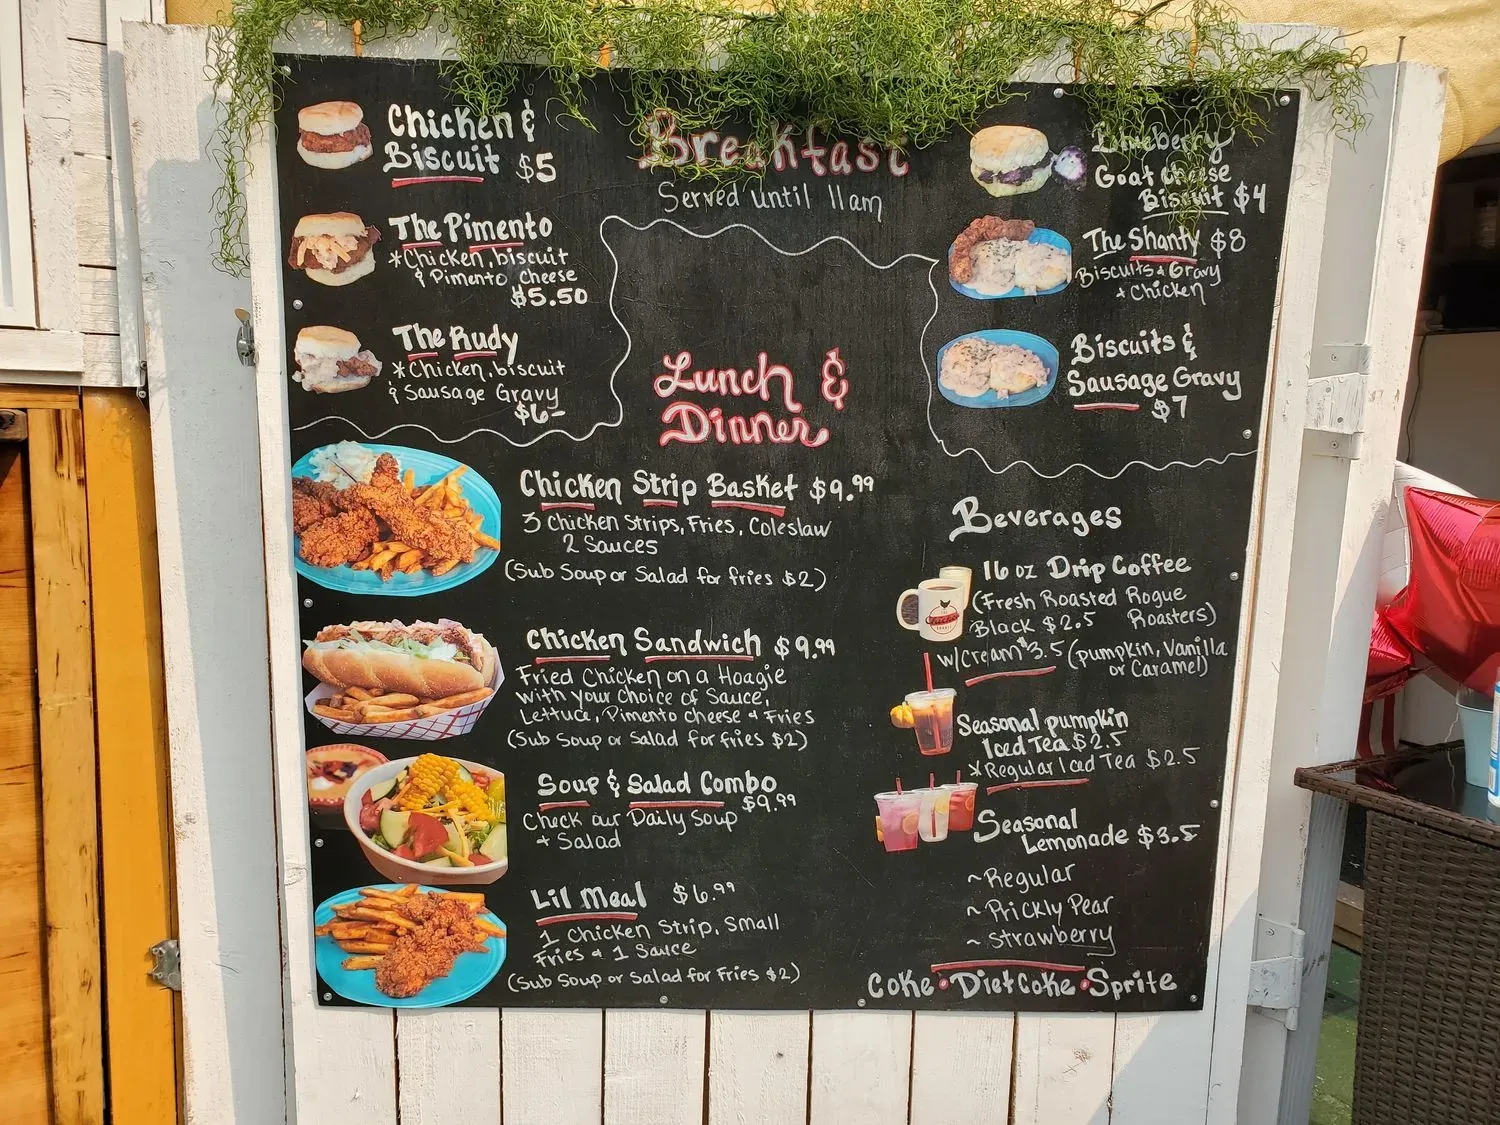 Breakfast
Served until 11am
Chicken &
Biscuit $5
The Pimento
*Chicken, biscuit
& Pimento cheese
$5.50
The Rudy
*Chicken, biscuit
& Sausage Gravy
$6-
Blueberry
Goat cheese
Biscuit $4
The Shanty $8
Biscuits & Gravy
+ Chicken
Biscuits &
Sausage Gravy
$7
Lunch &
Dinner
Chicken Strip Basket $9.99
3 Chicken Strips, Fries, Coleslaw
2 Sauces
(Sub Soup or Salad for fries $2)
Chicken Sandwich $9.99
Fried Chicken on a Hoagie
with your choice of Sauce,
Lettuce, Pimento cheese + Fries
(Sub Soup or Salad for fries $2)
Soup & Salad Combo
$9.99
Check our Daily Soup
+ Salad
Lil Meal $6.99
1 Chicken Strip, Small
Fries + 1 Sauce
(Sub Soup or Salad for Fries $2)
Beverages
16 oz Drip Coffee
(Fresh Roasted Rogue
Black $2.5 Roasters)
w/Cream $3.5 (pumpkin, Vanilla
or Caramel)
Seasonal pumpkin
Iced Tea $2.5
*Regular Iced Tea $2.5
Seasonal
Lemonade $3.5
~Regular
~Prickly Pear
~Strawberry
Coke • Diet Coke • Sprite